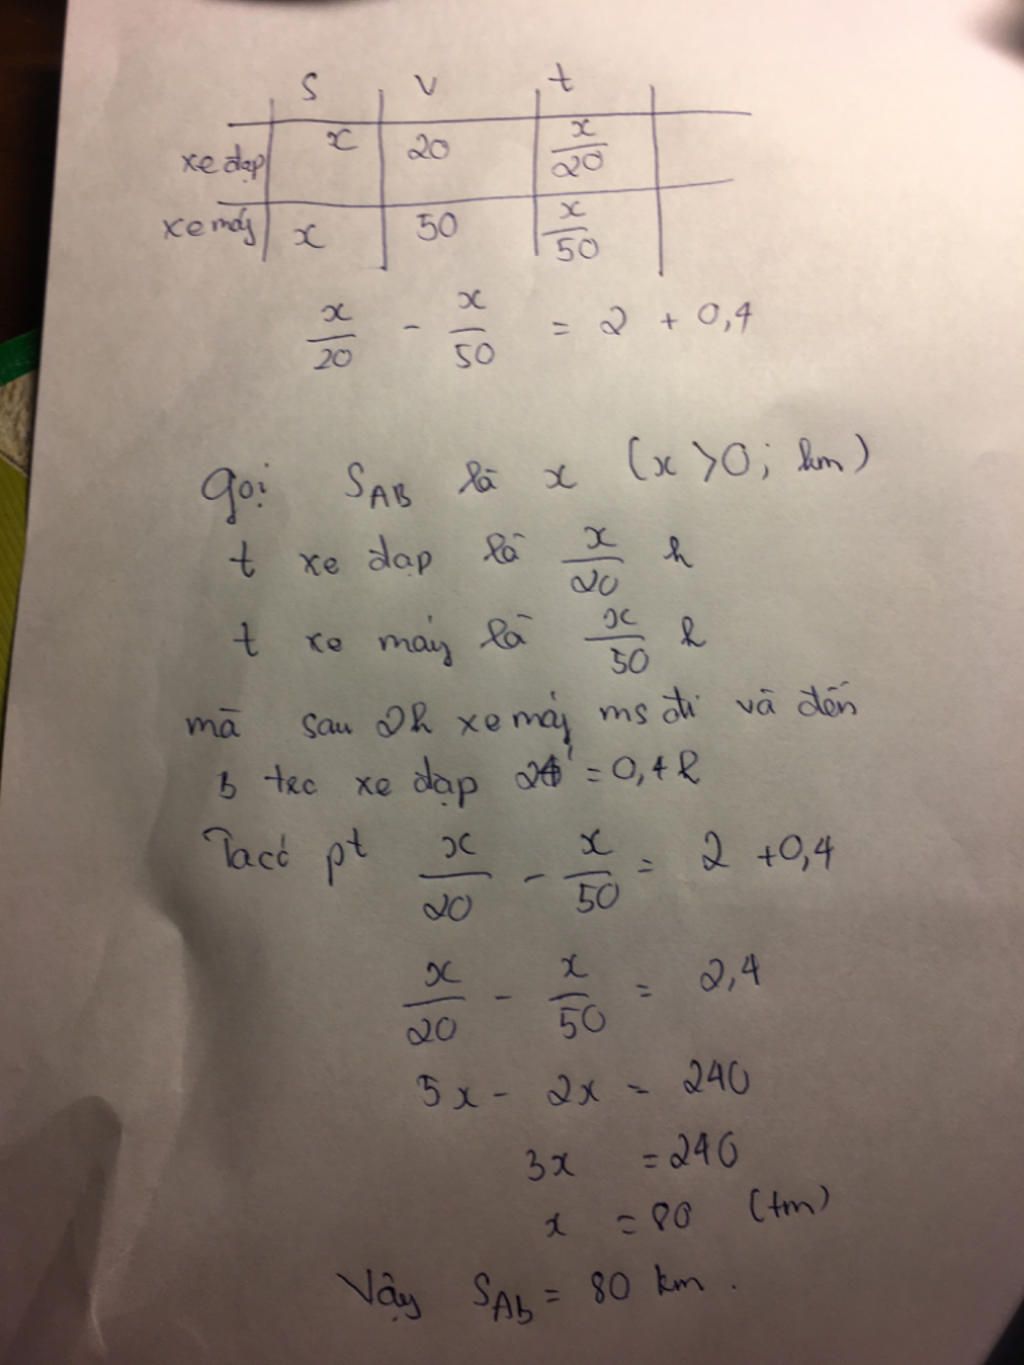 S V t
xe đạp x 20 x/20
xe máy x 50 x/50
x/20 - x/50 = 2 + 0,4
Gọi SAB là x (x>0; km)
t xe đạp là x/20 h
t xe máy là x/50 h
mà sau 2h xe máy ms đi và đến
B trc xe đạp 24' = 0,4h
Ta có pt x/20 - x/50 = 2 + 0,4
x/20 - x/50 = 2,4
5x - 2x = 240
3x = 240
x = 80 (tm)
Vậy SAb = 80 km.